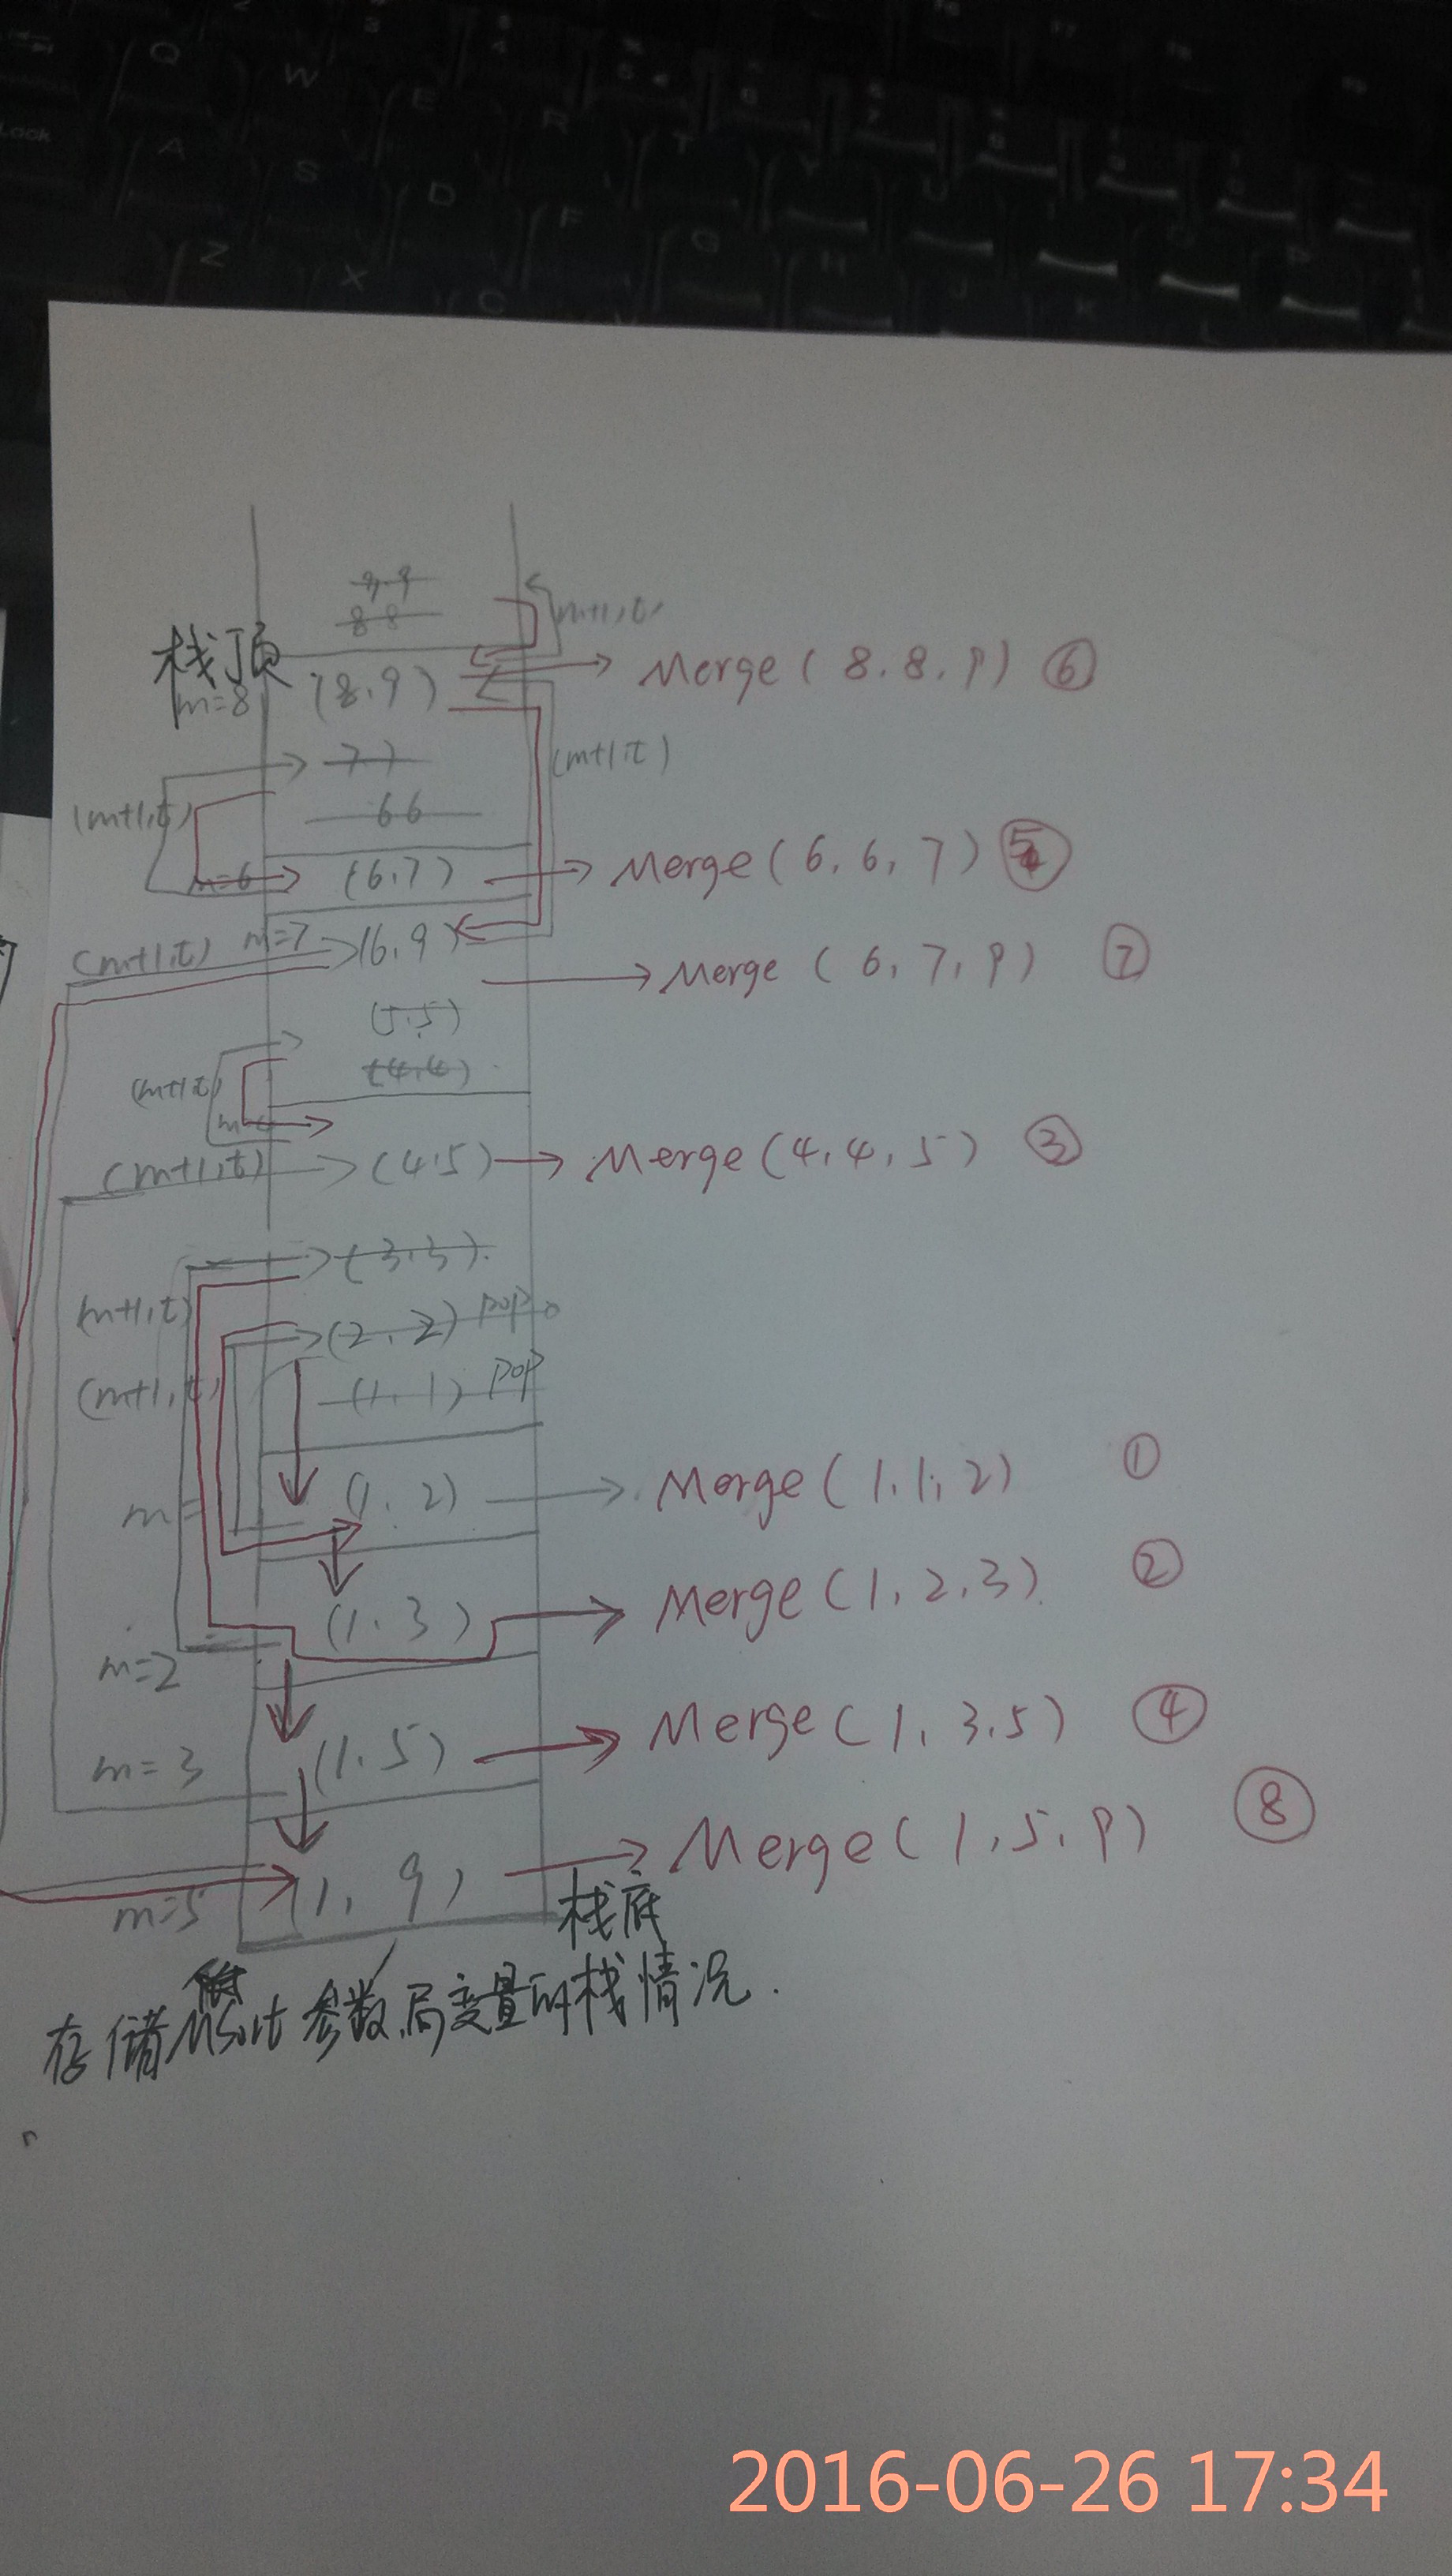 Q W E R T Y U
A S D F G H J K
Z X C V
9.9
8 8
m+1,t
栈顶
m=8 (8,9) Merge(8.8.9) ⑥
7 7
(m+1,t)
(m+1,t)
6 6
m=6 (6,7) Merge(6,6,7) ⑤
(m+1,t) m=7 (6,9)
Merge (6,7,9) ⑦
(5,5)
(m+1,t) (4,4)
(m+1,t) (4,5) Merge(4,4,5) ③
(3,3)
(m+1,t)
(2,2) pop
(m+1,t) (1,1) pop
m= (1,2) Merge(1,1,2) ①
(1,3) Merge(1,2,3) ②
m=2
m=3 (1,5) Merge(1,3.5) ④
m=5 (1,9) Merge(1,5,9) ⑧
栈底
存储MSort参数,局变量的栈情况.
2016-06-26 17:34